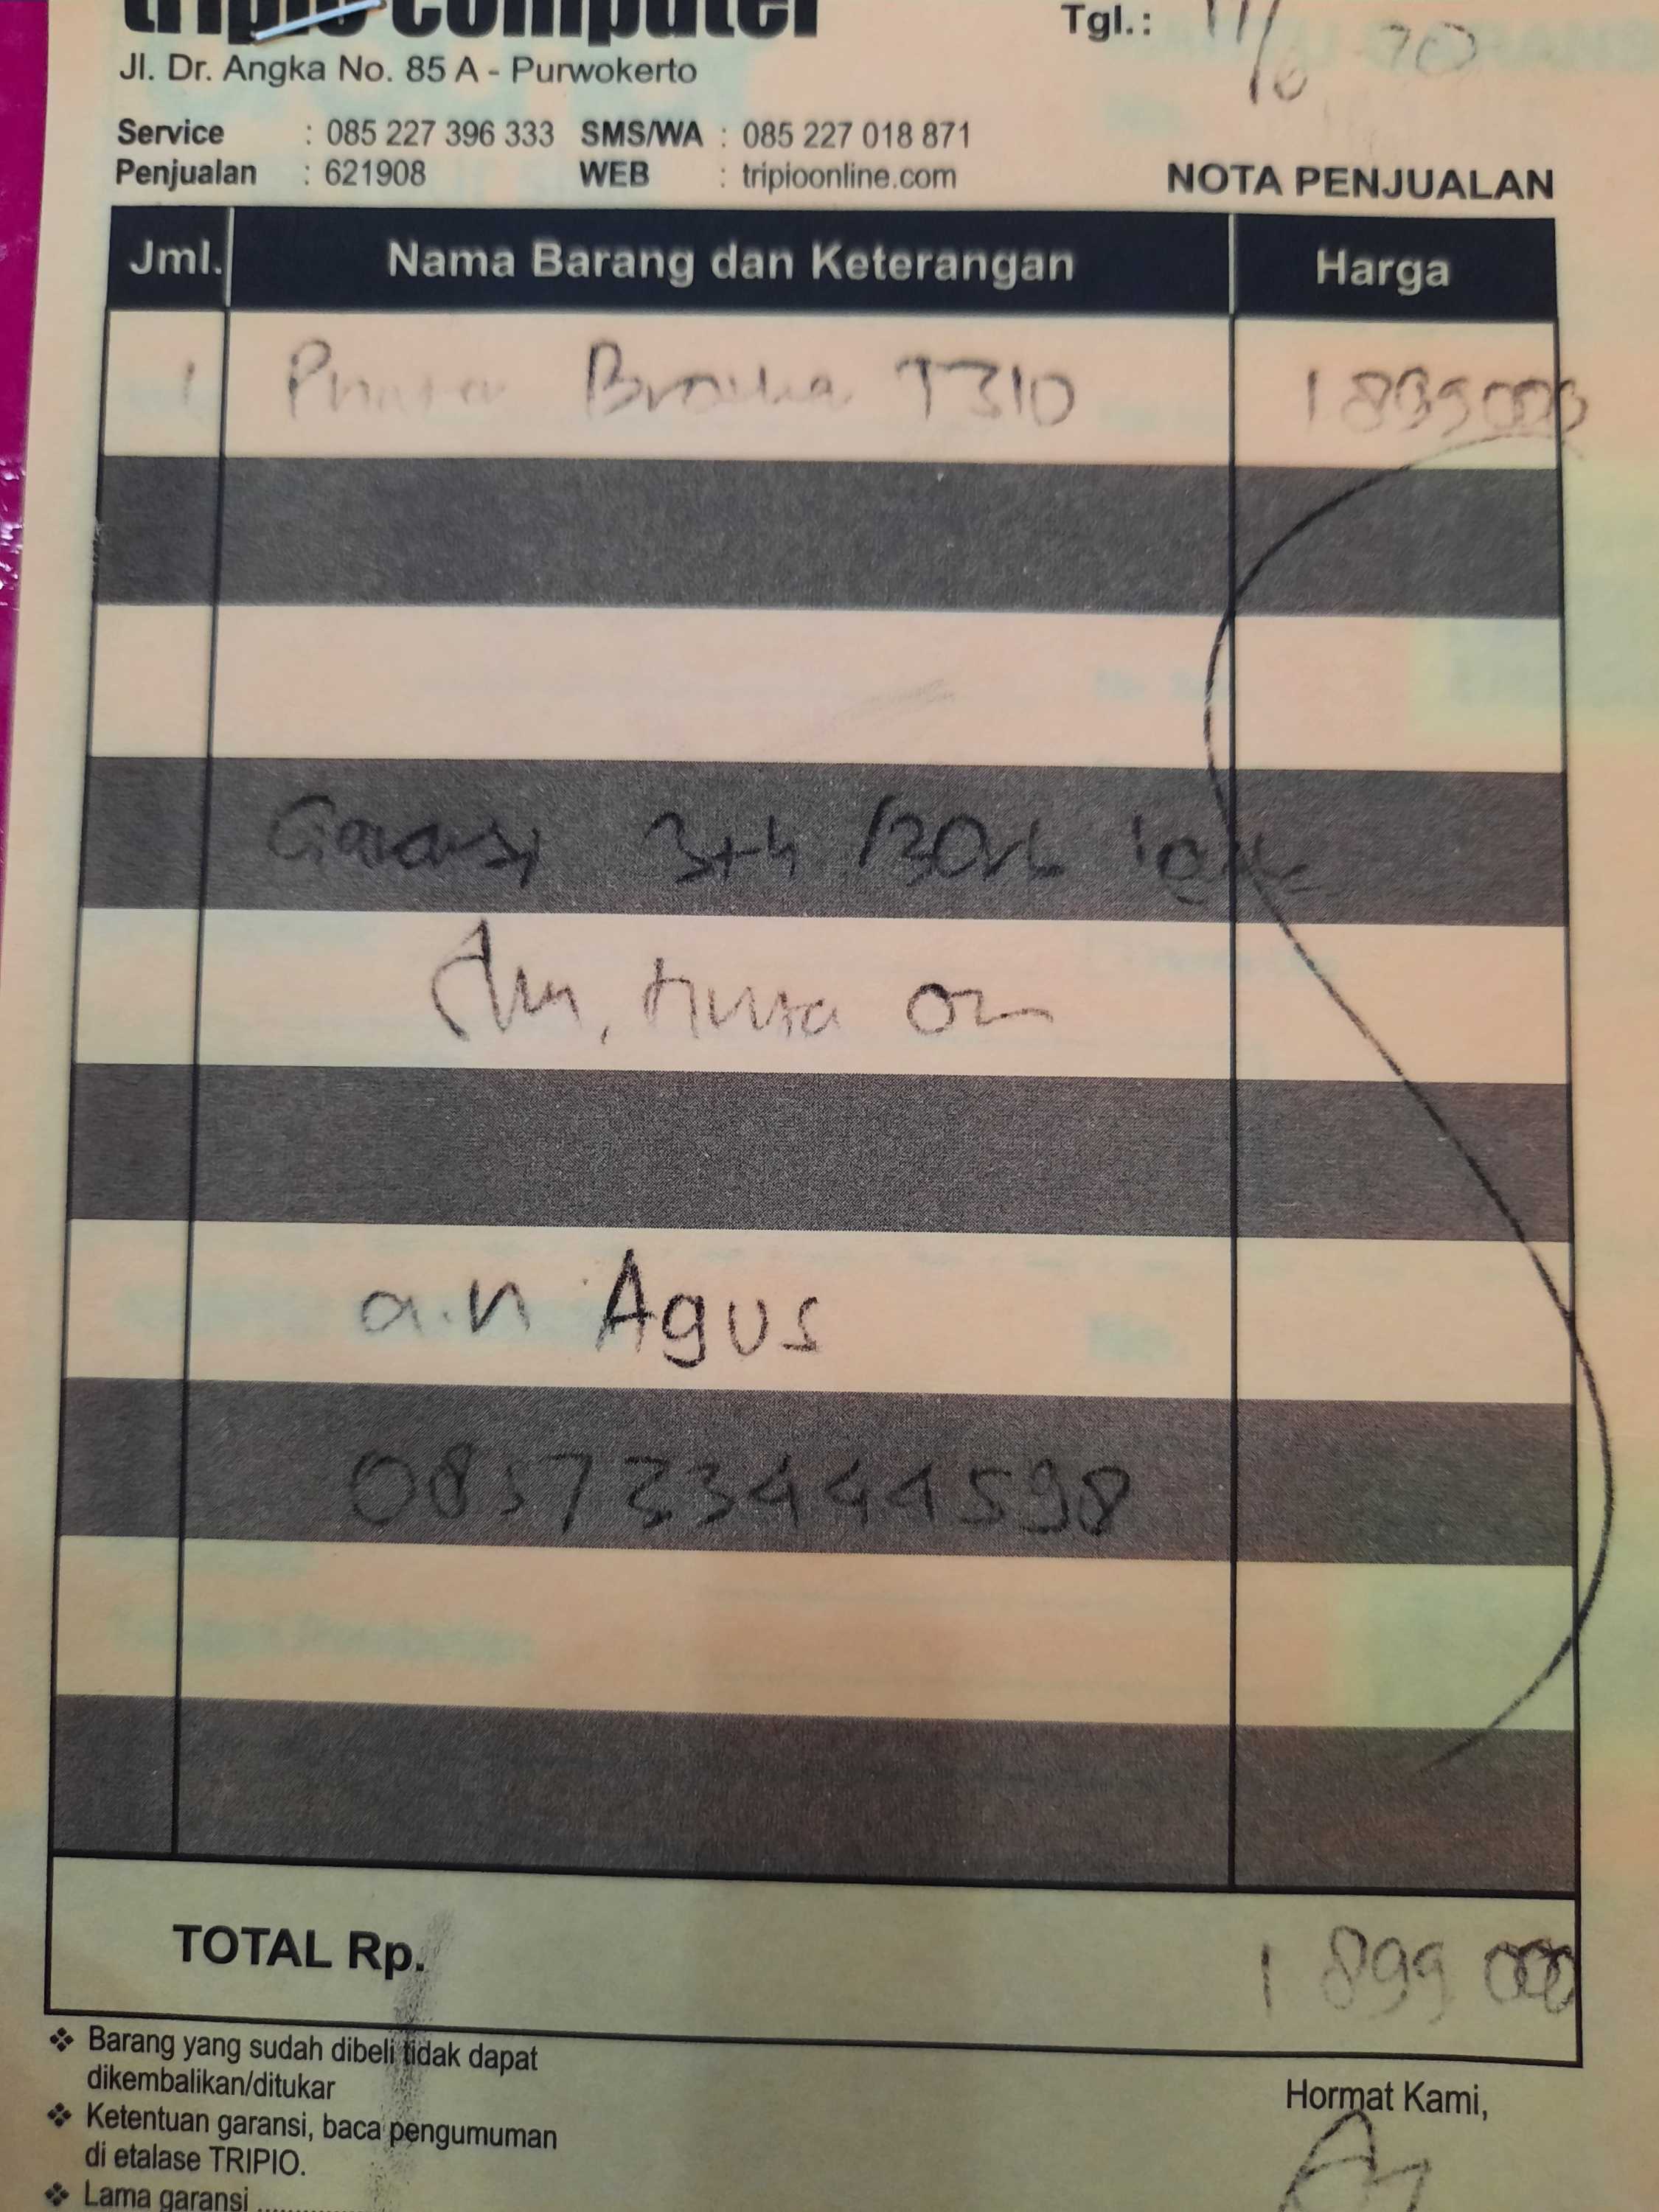 tripio computer
Tgl.: 11/6 20
Jl. Dr. Angka No. 85 A - Purwokerto
Service : 085 227 396 333 SMS/WA : 085 227 018 871
Penjualan : 621908 WEB : tripioonline.com
NOTA PENJUALAN
Jml. Nama Barang dan Keterangan Harga
1 Printer Brother T310 1899000
Garansi 3th /30rb
tinta on
a.n Agus
085733444598
TOTAL Rp. 1 899 000
❖ Barang yang sudah dibeli tidak dapat
dikembalikan/ditukar
❖ Ketentuan garansi, baca pengumuman
di etalase TRIPIO.
❖ Lama garansi ............
Hormat Kami,